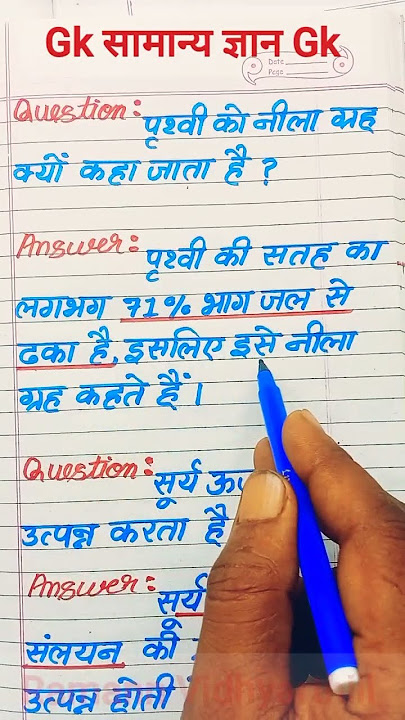 Gk सामान्य ज्ञान Gk
Date
Page
Question: पृथ्वी को नीला ग्रह
क्यों कहा जाता है ?
Answer: पृथ्वी की सतह का
लगभग 71% भाग जल से
ढका है, इसलिए इसे नीला
ग्रह कहते हैं।
Question: सूर्य
उत्पन्न करता है
Answer: सूर्य
संलयन की
उत्पन्न होती